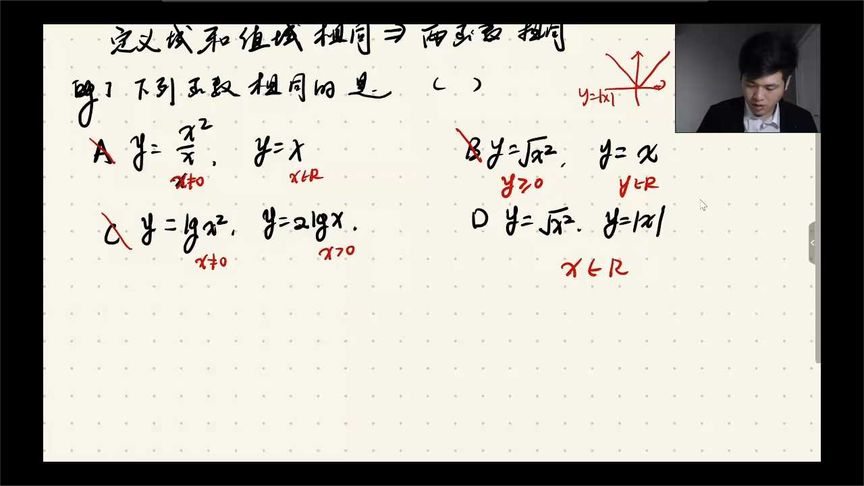 定义域和值域相同⇒两函数相同
y=|x|
例1 下列函数相同的是. ( )
A y=x²/x, y=x
x≠0 x∈R
B y=√x², y=x
y≥0 y∈R
C y=lgx², y=2lgx.
x≠0 x>0
D y=√x². y=|x|
x∈R